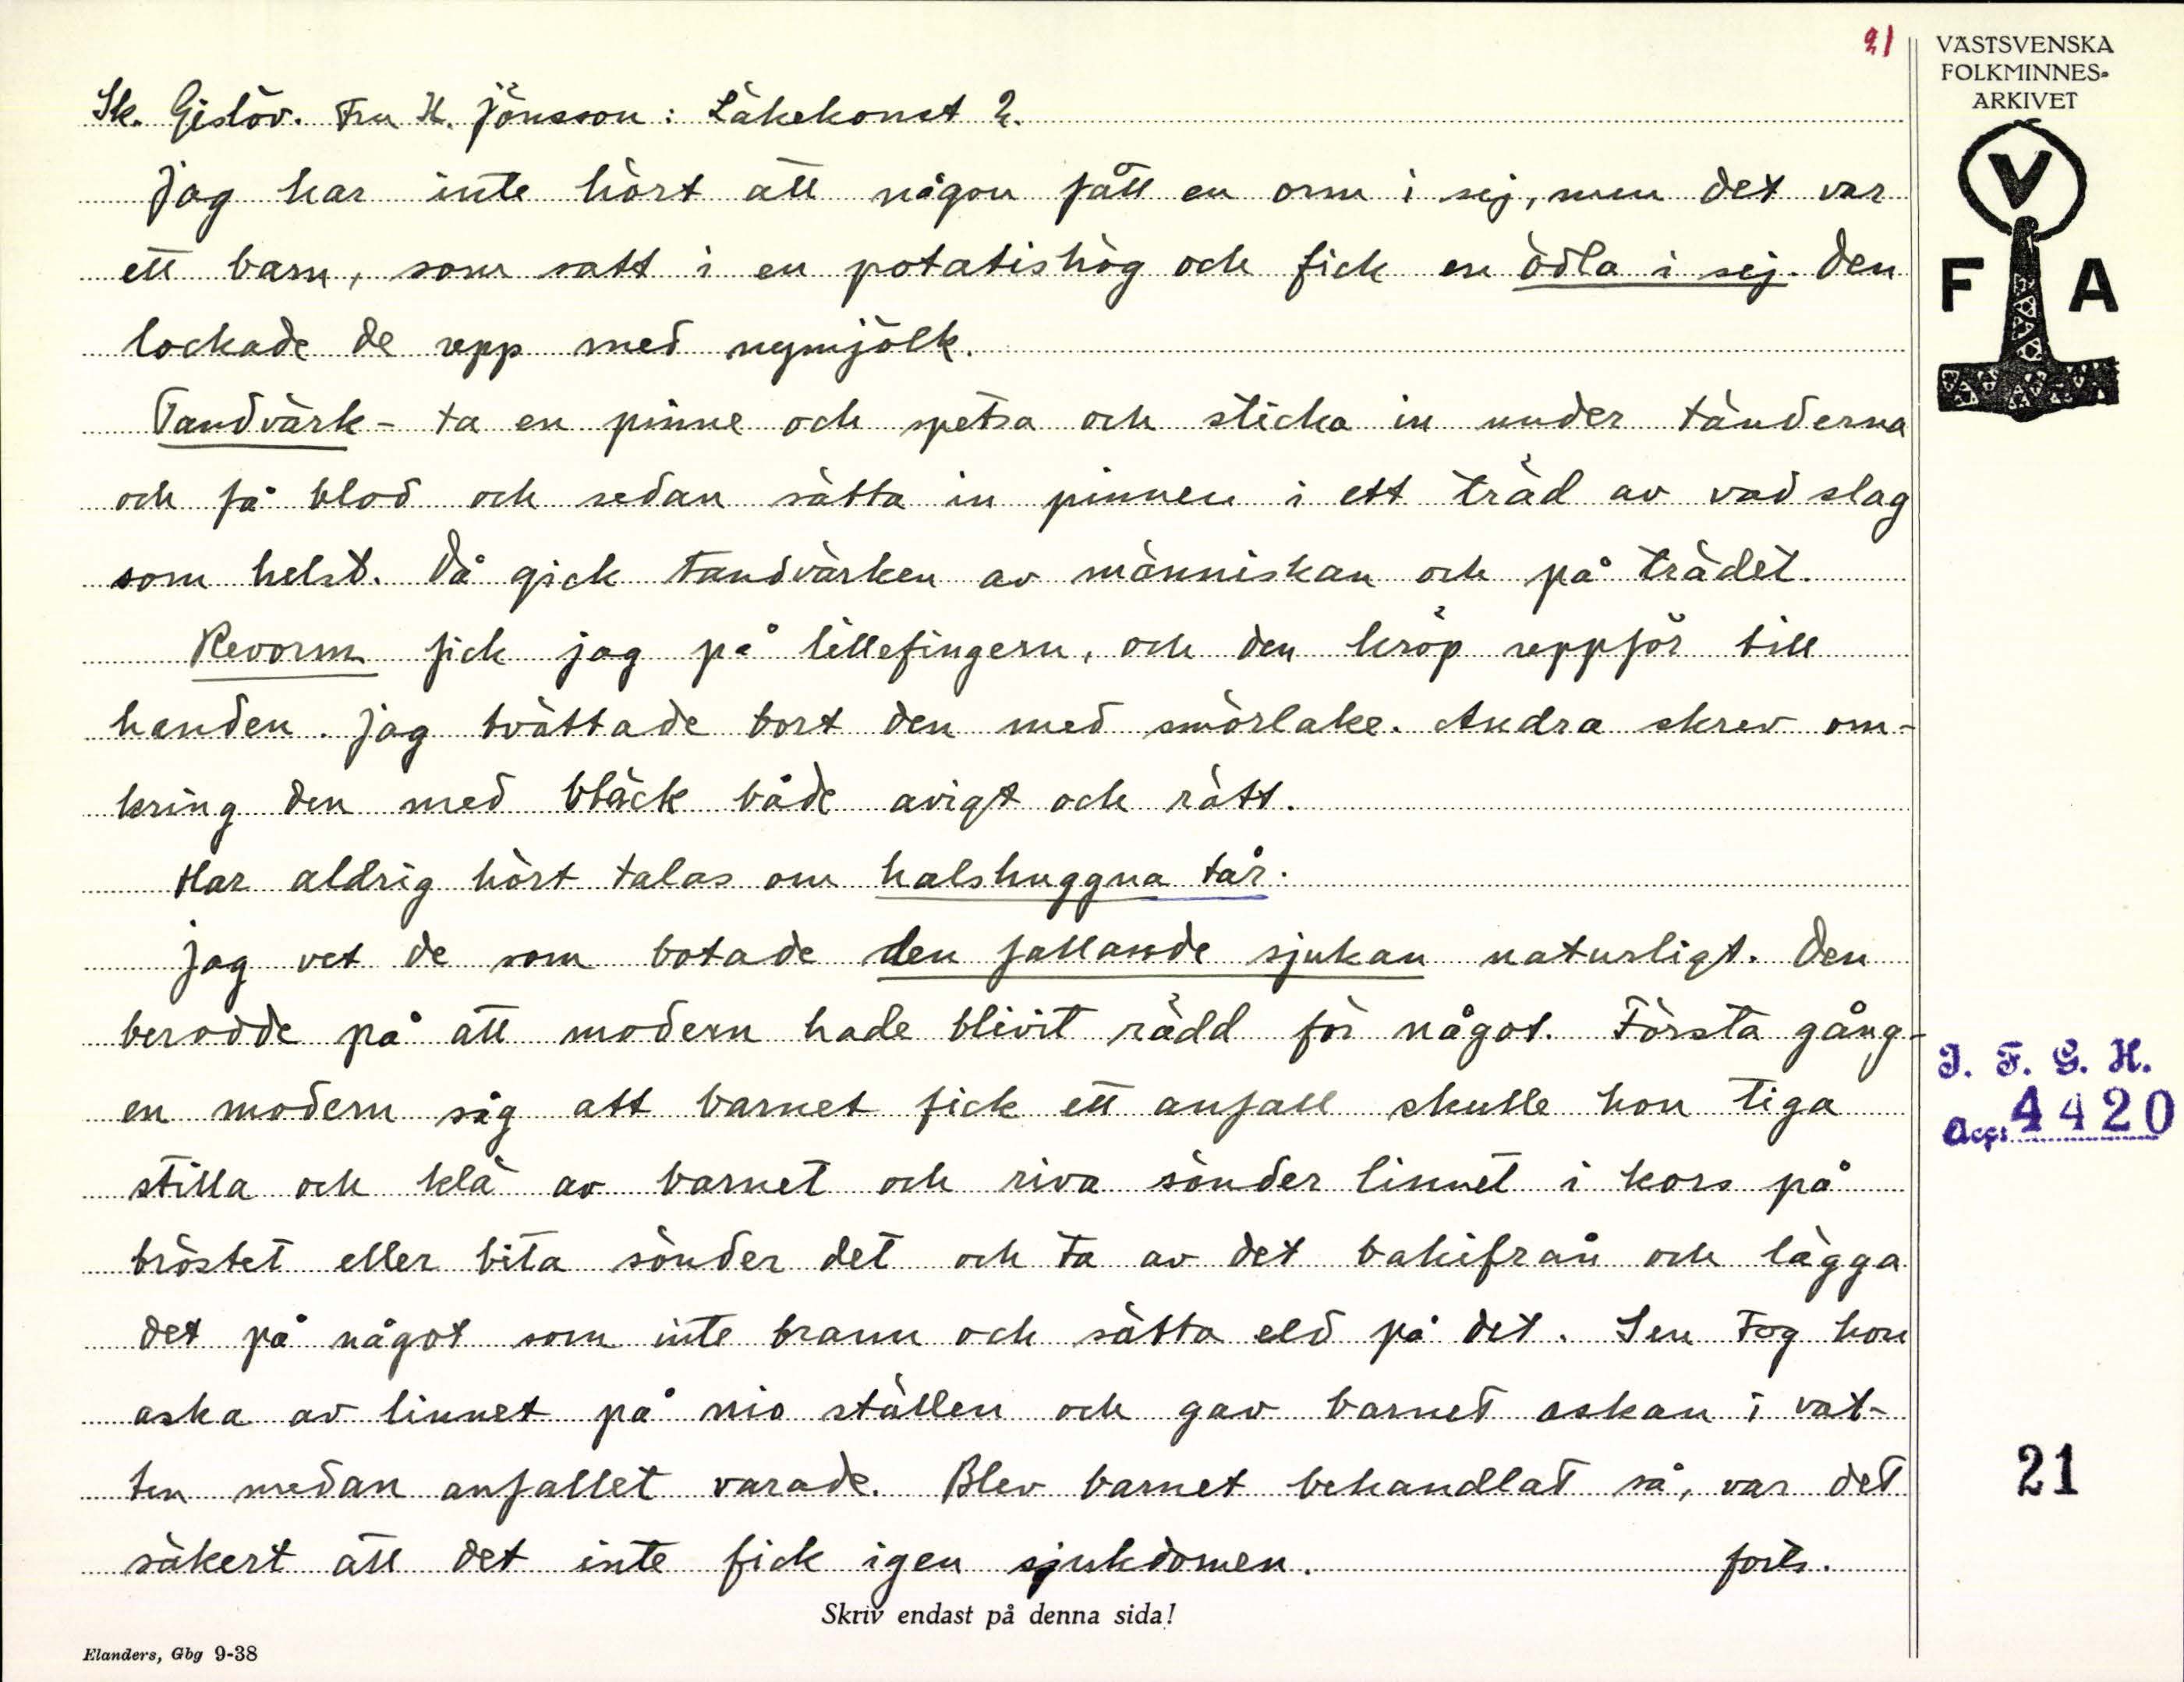 21
VÄSTSVENSKA
FOLKMINNES-
ARKIVET
V
F A
Sk. Gislöv. Fru H. Jönsson: Läkekonst 2.
Jag har inte hört att någon fått en orm i sej, men det var
ett barn, som satt i en potatishög och fick en ödla i sej. Den
lockade de upp med nymjölk.
Tandvärk - ta en pinne och spetsa och sticka in under tänderna
och få blod och sedan sätta in pinnen i ett träd av vad slag
som helst. Då gick tandvärken av människan och på trädet.
Revorm fick jag på lillefingern, och den kröp uppför till
handen. Jag tvättade bort den med smörlake. Andra skrev om-
kring den med bläck både avigt och rätt.
Har aldrig hört talas om halshuggna tår.
Jag vet de som botade den fallande sjukan naturligt. Den
berodde på att modern hade blivit rädd för något. Första gång-
en modern såg att barnet fick ett anfall skulle hon tiga
stilla och klä av barnet och riva sönder linnet i kors på
bröstet eller bita sönder det och ta av det bakifrån och lägga
det på något som inte brann och sätta eld på det. Sen tog hon
aska av linnet på nio ställen och gav barnet askan i vat-
ten medan anfallet varade. Blev barnet behandlat så, var det
säkert att det inte fick igen sjukdomen. forts.
I. F. G. H.
Acc: 4420
21
Skriv endast på denna sida!
Elanders, Gbg 9-38